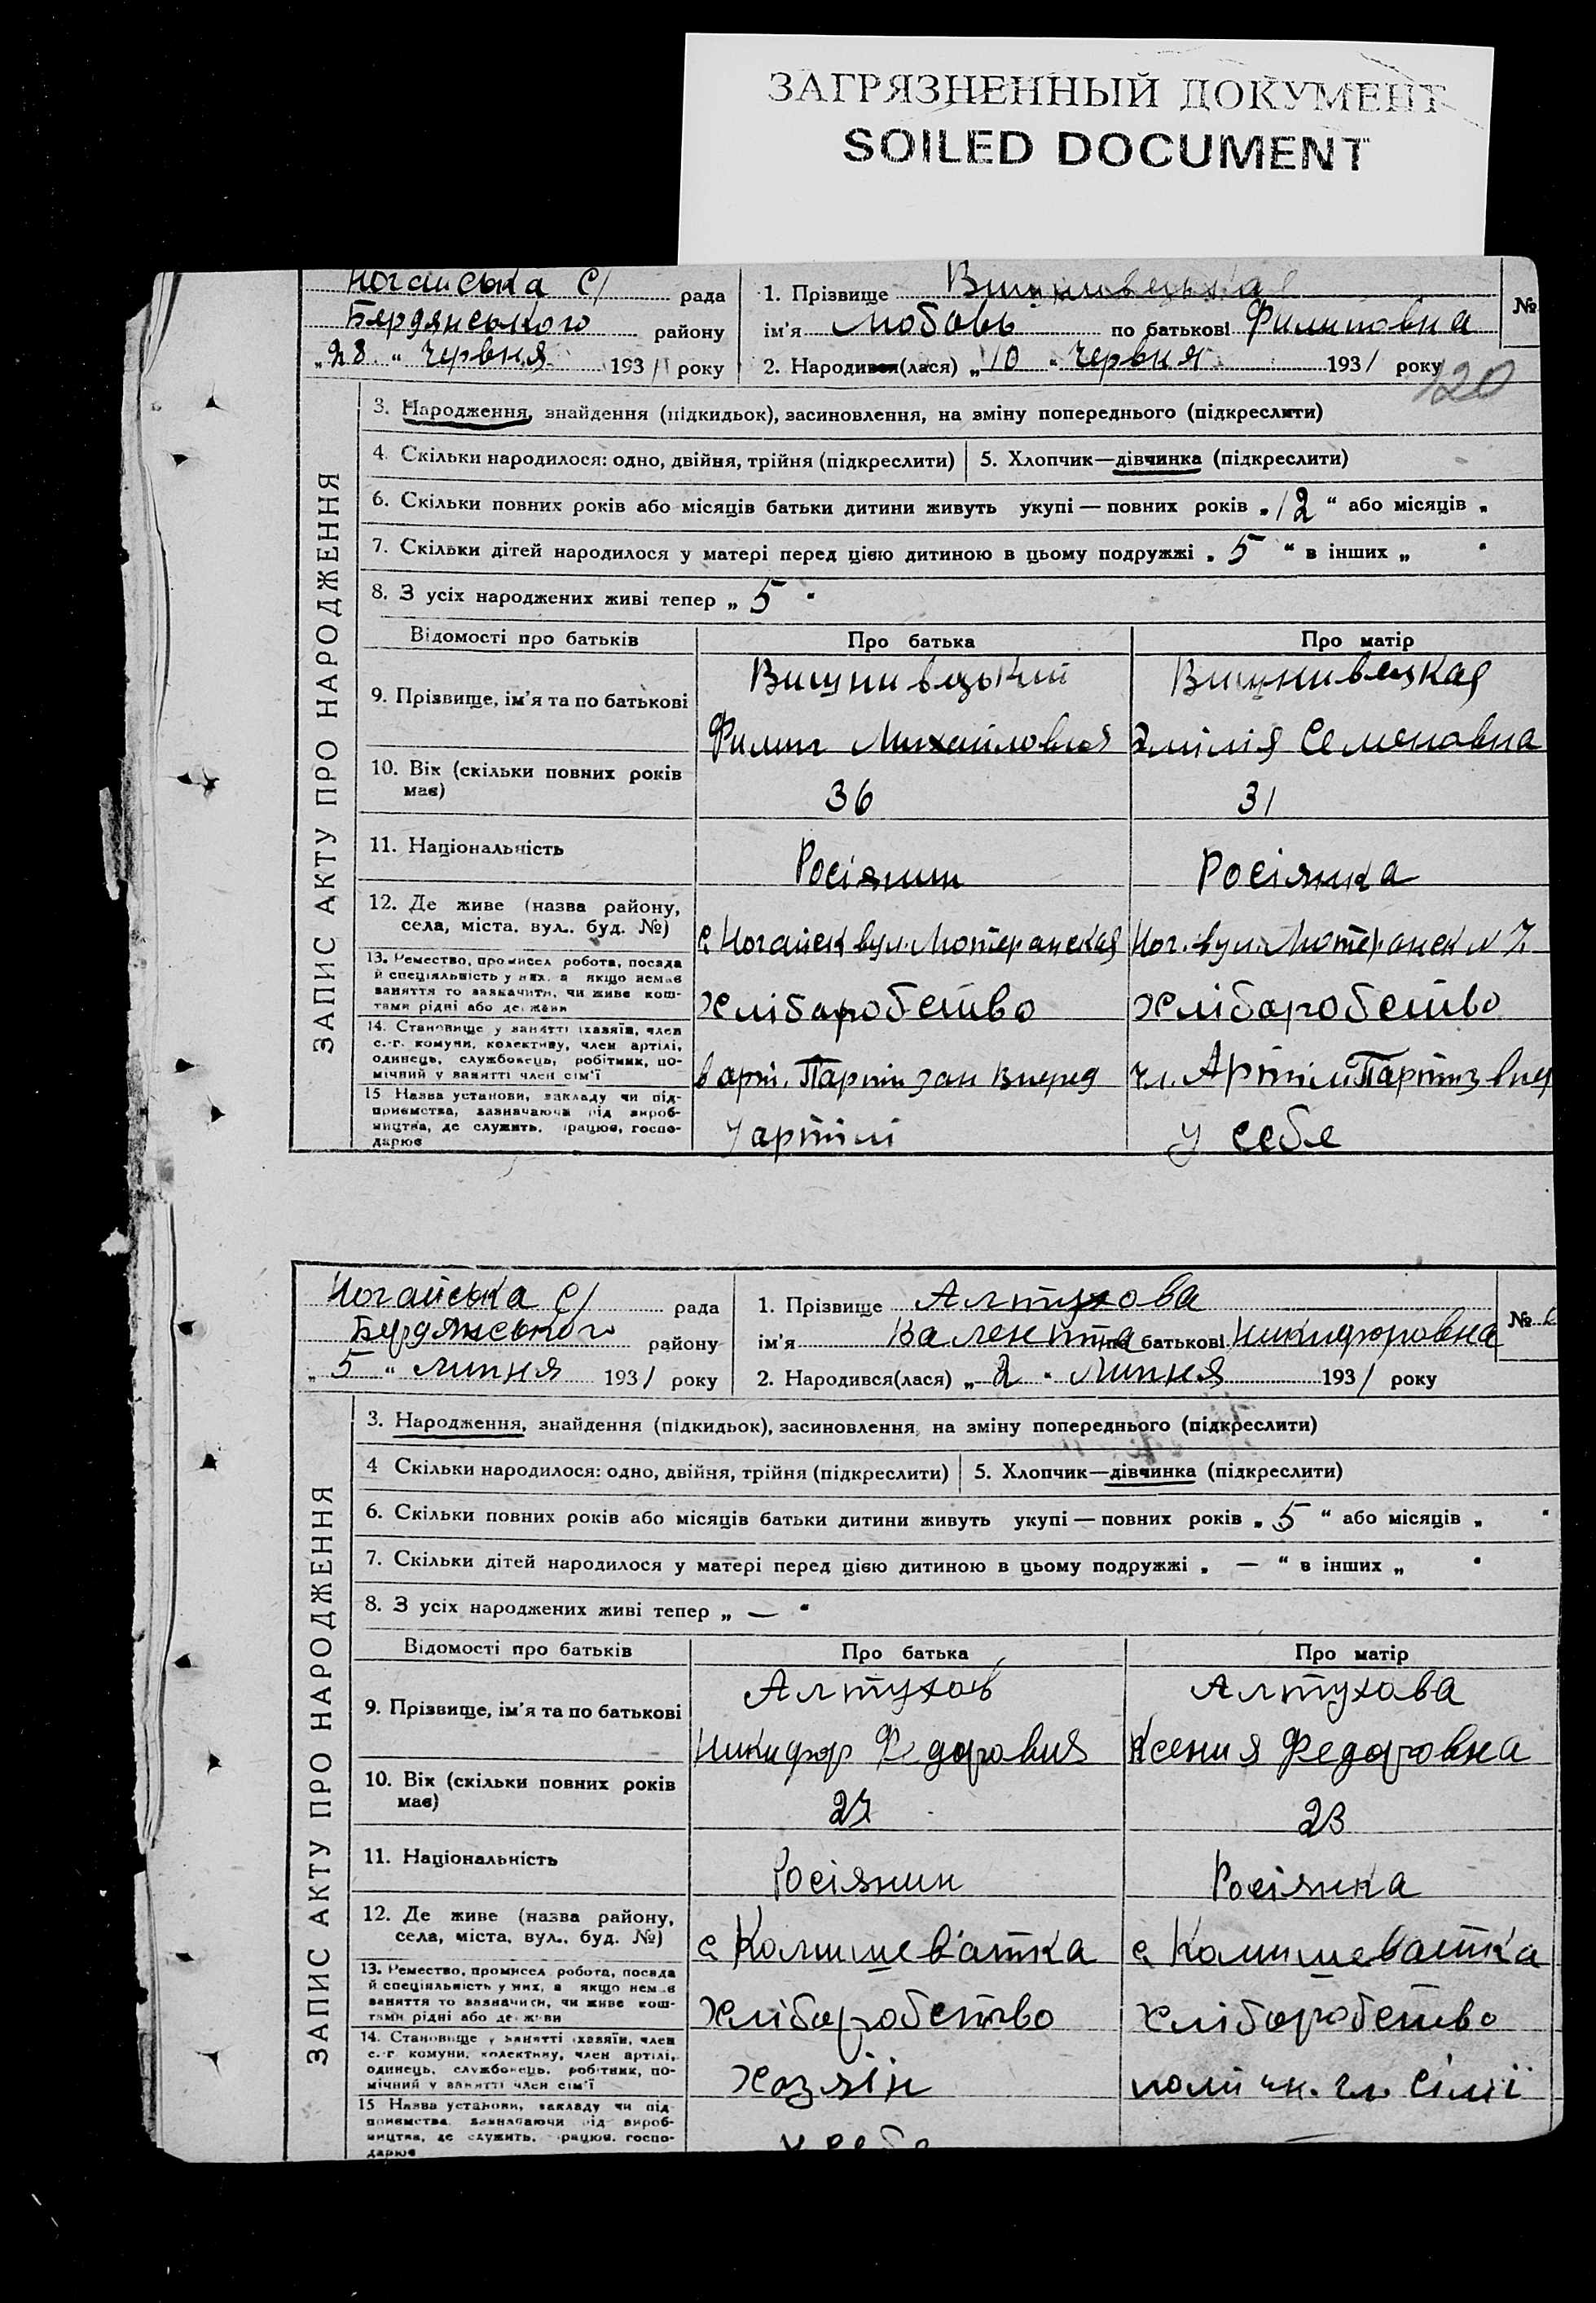 ЗАГРЯЗНЕННЫЙ ДОКУМЕНТ
SOILED DOCUMENT
Ногайська С/ рада
Бердянського району
„28 “ Червня 1931 року
1. Прізвище
ім'я Любовь по батькові Филиповна
2. Народився(лася) „10 “ Червня 1931 року
№
120
ЗАПИС АКТУ ПРО НАРОДЖЕННЯ
3. Народження, знайдення (підкидьок), засиновлення, на зміну попереднього (підкреслити)
4. Скільки народилося: одно, двійня, трійня (підкреслити)
5. Хлопчик—дівчинка (підкреслити)
6. Скільки повних років або місяців батьки дитини живуть укупі — повних років „12 “ або місяців „
7. Скільки дітей народилося у матері перед цією дитиною в цьому подружжі „ 5 “ в інших „ “
8. З усіх народжених живі тепер „ 5 “
Відомості про батьків Про батька Про матір
9. Прізвище, ім'я та по батькові
Вишнивецький Вишнивецкая
Филип Михайлович Эмілія Семеновна
10. Вік (скільки повних років має)
36 31
11. Національність
Росіянин Росіянка
12. Де живе (назва району, села, міста, вул., буд. №)
с Ногайск вул.
13. Ремество, промисел робота, посада й спеціяльність у них, а якщо немає заняття то зазначити, чи живе коштами рідні або держави
хліборобство хліборобство
14. Становище у занятті (хазяїн, член с.-г. комуни, колективу, член артілі, одинець, службовець, робітник, помічний у занятті член сім'ї
в арт. Партизан Вперед чл. Артіли
15 Назва установи, закладу чи підприємства, зазначаючи рід виробництва, де служить, працює, господарює
у артілі у себе
Ногайська С/ рада
Бердянського району
„ 5 “ липня 1931 року
1. Прізвище Алтухова
ім'я Валентина батькові Никифоровна
2. Народився(лася) „ 2 “ Липня 1931 року
№
ЗАПИС АКТУ ПРО НАРОДЖЕННЯ
3. Народження, знайдення (підкидьок), засиновлення, на зміну попереднього (підкреслити)
4 Скільки народилося: одно, двійня, трійня (підкреслити)
5. Хлопчик—дівчинка (підкреслити)
6. Скільки повних років або місяців батьки дитини живуть укупі — повних років „ 5 “ або місяців „ “
7. Скільки дітей народилося у матері перед цією дитиною в цьому подружжі „ — “ в інших „ “
8. З усіх народжених живі тепер „ — “
Відомості про батьків Про батька Про матір
9. Прізвище, ім'я та по батькові
Алтухов Алтухова
Никифор Федорович Ксения Федоровна
10. Вік (скільки повних років має)
27 23
11. Національність
Росіянин Росіянка
12. Де живе (назва району, села, міста, вул., буд. №)
с Камишев'атка с Камишеватка
13. Ремество, промисел робота, посада й спеціяльність у них, а якщо немає заняття то зазначити, чи живе коштами рідні або держави
хліборобство хліборобство
14. Становище у занятті (хазяїн, член с.-г. комуни, колективу, член артілі, одинець, службовець, робітник, помічний у занятті член сім'ї
хазяїн чл. сімї
15 Назва установи, закладу чи підприємства, зазначаючи рід виробництва, де служить, працює, господарює
у себе